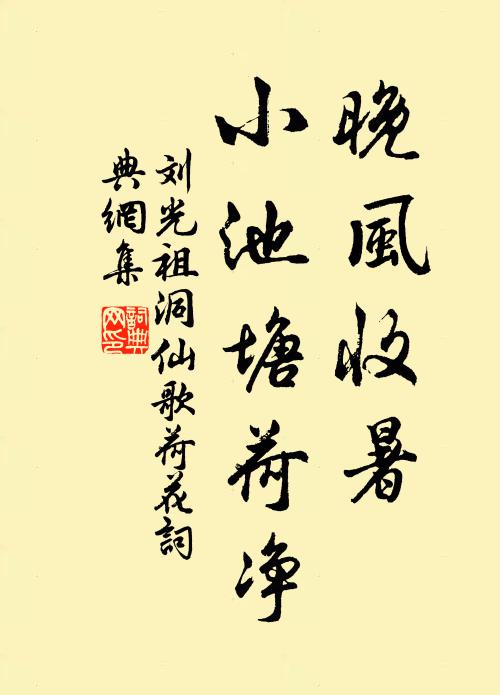 晚風收暑
小池塘荷净
刘光祖洞仙歌荷花詞
典網集
詞典网印